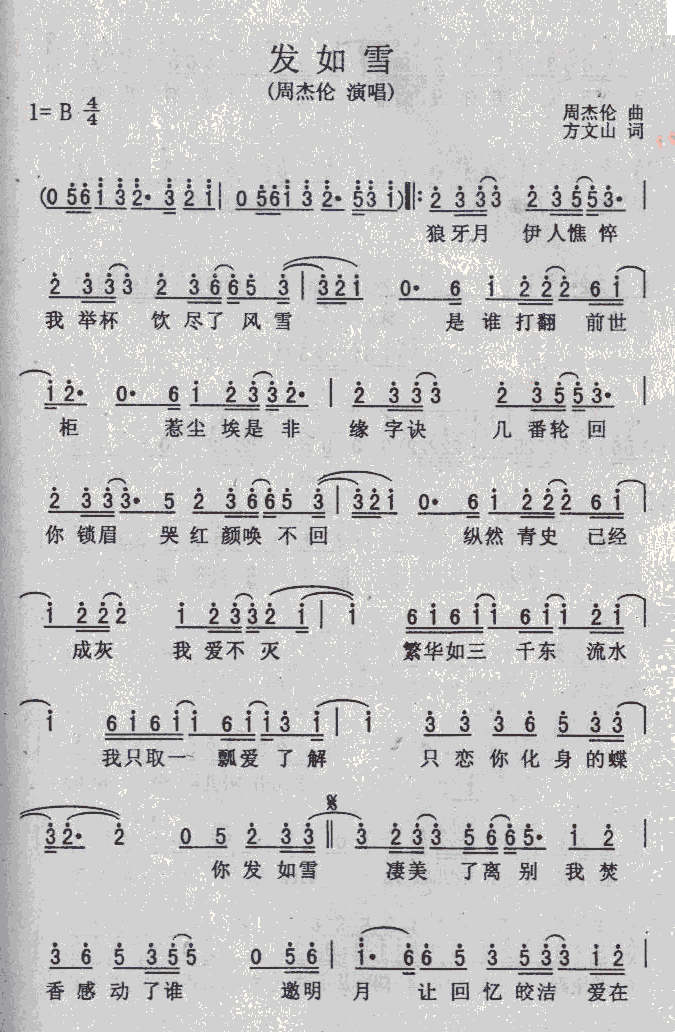 发如雪
(周杰伦 演唱)
1= B 4/4
周杰伦 曲
方文山 词
狼牙月 伊人憔悴
我举杯 饮尽了风雪 是谁打翻前世
柜 惹尘埃是非 缘字诀 几番轮回
你锁眉 哭红颜唤不回 纵然青史已经
成灰 我爱不灭 繁华如三千东流水
我只取一瓢爱了解 只恋你化身的蝶
你发如雪 凄美了离别我焚
香感动了谁 邀明月 让回忆皎洁 爱在